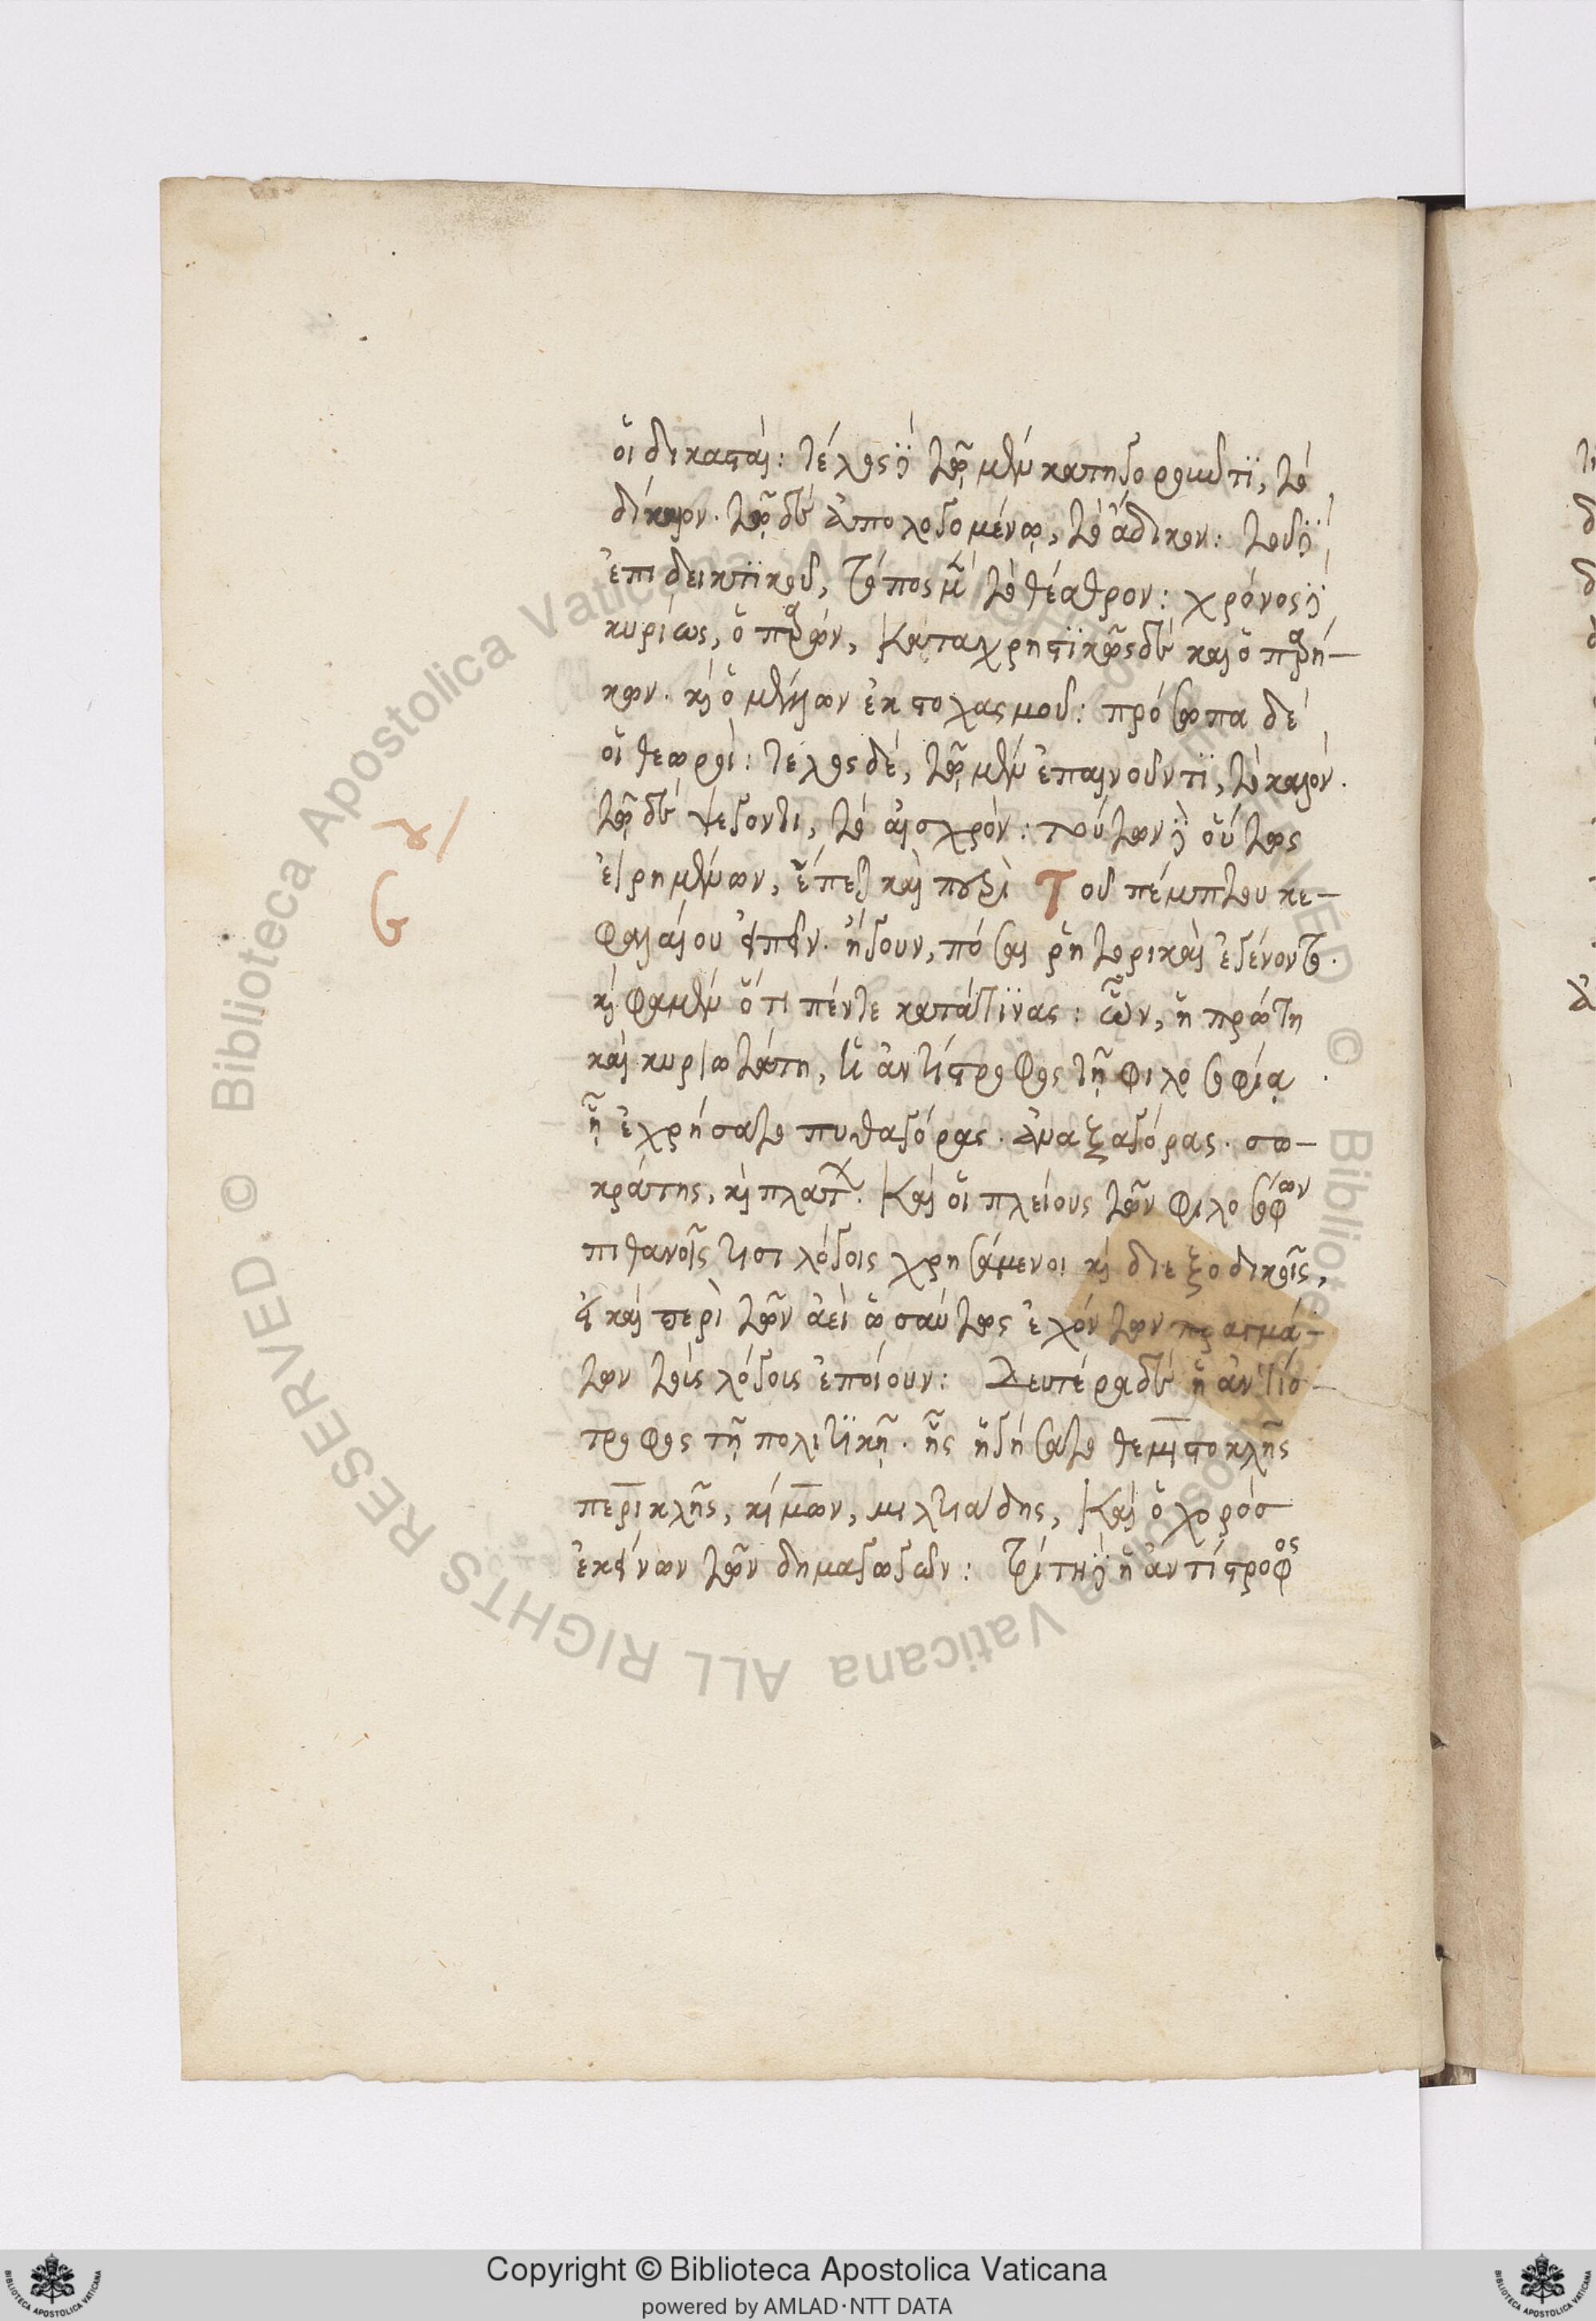 οἱ δικασταί: τέλος δὲ τῷ μὲν κατηγοροῦντι, τὸ
δίκαιον. τῷ δὲ ἀπολογομένῳ, τὸ ἄδικον: τοῦ δὲ
ἐπιδεικτικοῦ, τόπος μὲν τὸ θέατρον: χρόνος δὲ
κυρίως, ὁ παρών, καταχρηστικῶς δὲ καὶ ὁ παρῳχη-
κὼν. καὶ ὁ μέλλων ἐκ στοχασμοῦ: πρόσωπα δὲ
οἱ θεωροί: τέλος δέ, τῷ μὲν ἐπαινοῦντι, τὸ καλόν.
τῷ δὲ ψέγοντι, τὸ αἰσχρόν: τούτων δὲ οὕτως
εἰρημένων, εἴπερ καὶ περὶ τοῦ πέμπτου κε-
φαλαίου εἰπεῖν. ἤγουν, πόσαι ῥητορικαὶ ἐγένοντο.
καὶ φαμὲν ὅτι πέντε κατά τινας: ὧν, ἡ πρώτη
καὶ κυριωτάτη, ἡ ἀντίστροφος τῇ φιλοσοφίᾳ.
ᾗ ἐχρήσατο πυθαγόρας. ἀναξαγόρας. σω-
κράτης, καὶ πλάτων. καὶ οἱ πλείους τῶν φιλοσόφων
πιθανοῖς τισι λόγοις χρησάμενοι καὶ διεξοδικοῖς,
εἰ καὶ περὶ τῶν ἀεὶ ὡσαύτως ἐχόντων πραγμά-
των τοὶς λόγοις ἐποίουν: Δευτέρα δὲ ἡ ἀντίσ-
τροφος τῇ πολιτικῇ. ἧς ἡγήσατο θεμιστοκλῆς
περικλῆς, κίμων, μιλτιάδης, καὶ ὁ χορός
ἐκείνων τῶν δημαγωγῶν: τρίτη δὲ ἡ ἀντίστροφος
Copyright © Biblioteca Apostolica Vaticana
powered by AMLAD·NTT DATA